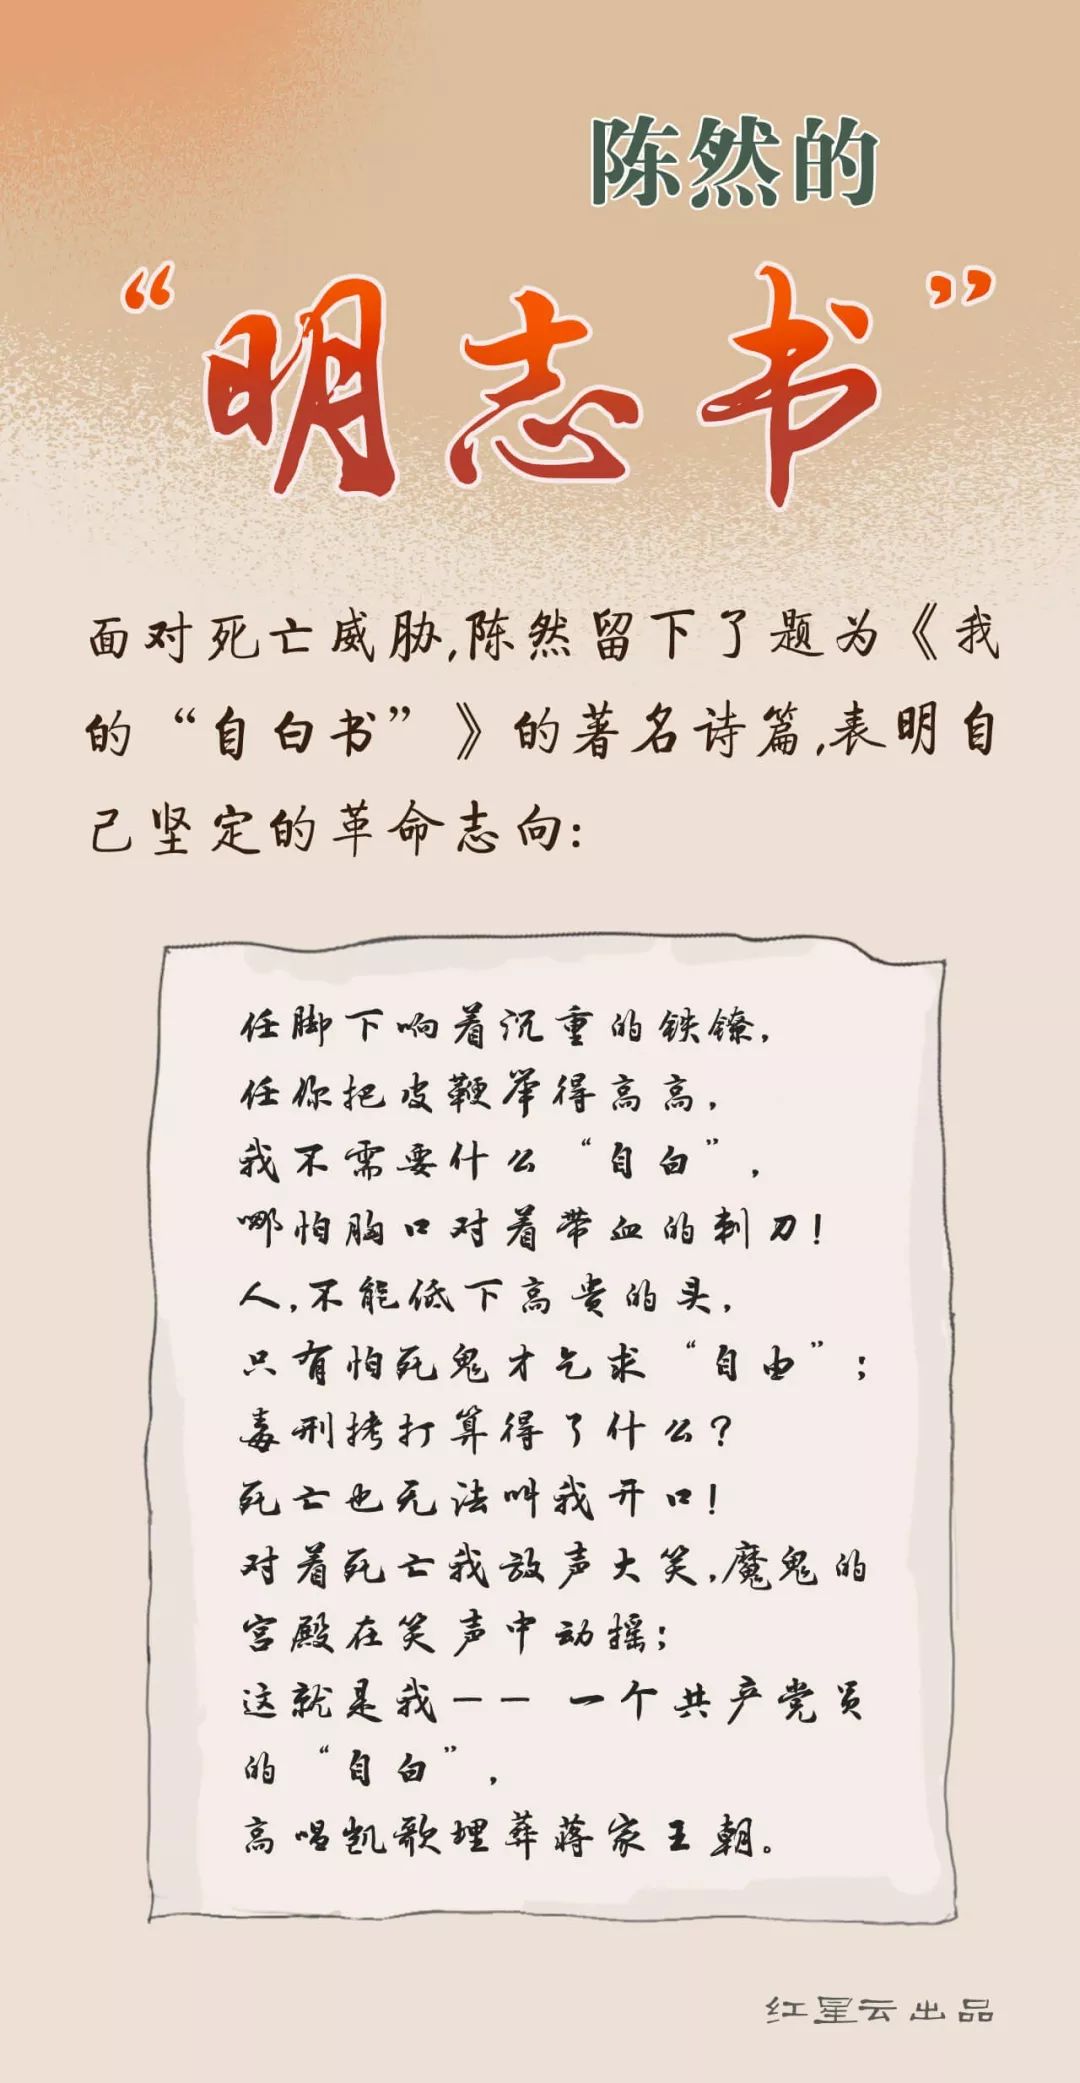 陈然的
“明志书”
面对死亡威胁,陈然留下了题为《我
的“自白书”》的著名诗篇,表明自
己坚定的革命志向:
任脚下响着沉重的铁镣,
任你把皮鞭举得高高,
我不需要什么“自白”,
哪怕胸口对着带血的刺刀!
人,不能低下高贵的头,
只有怕死鬼才乞求“自由”;
毒刑拷打算得了什么?
死亡也无法叫我开口!
对着死亡我放声大笑,魔鬼的
宫殿在笑声中动摇;
这就是我——一个共产党员
的“自白”,
高唱凯歌埋葬蒋家王朝。
红星云出品